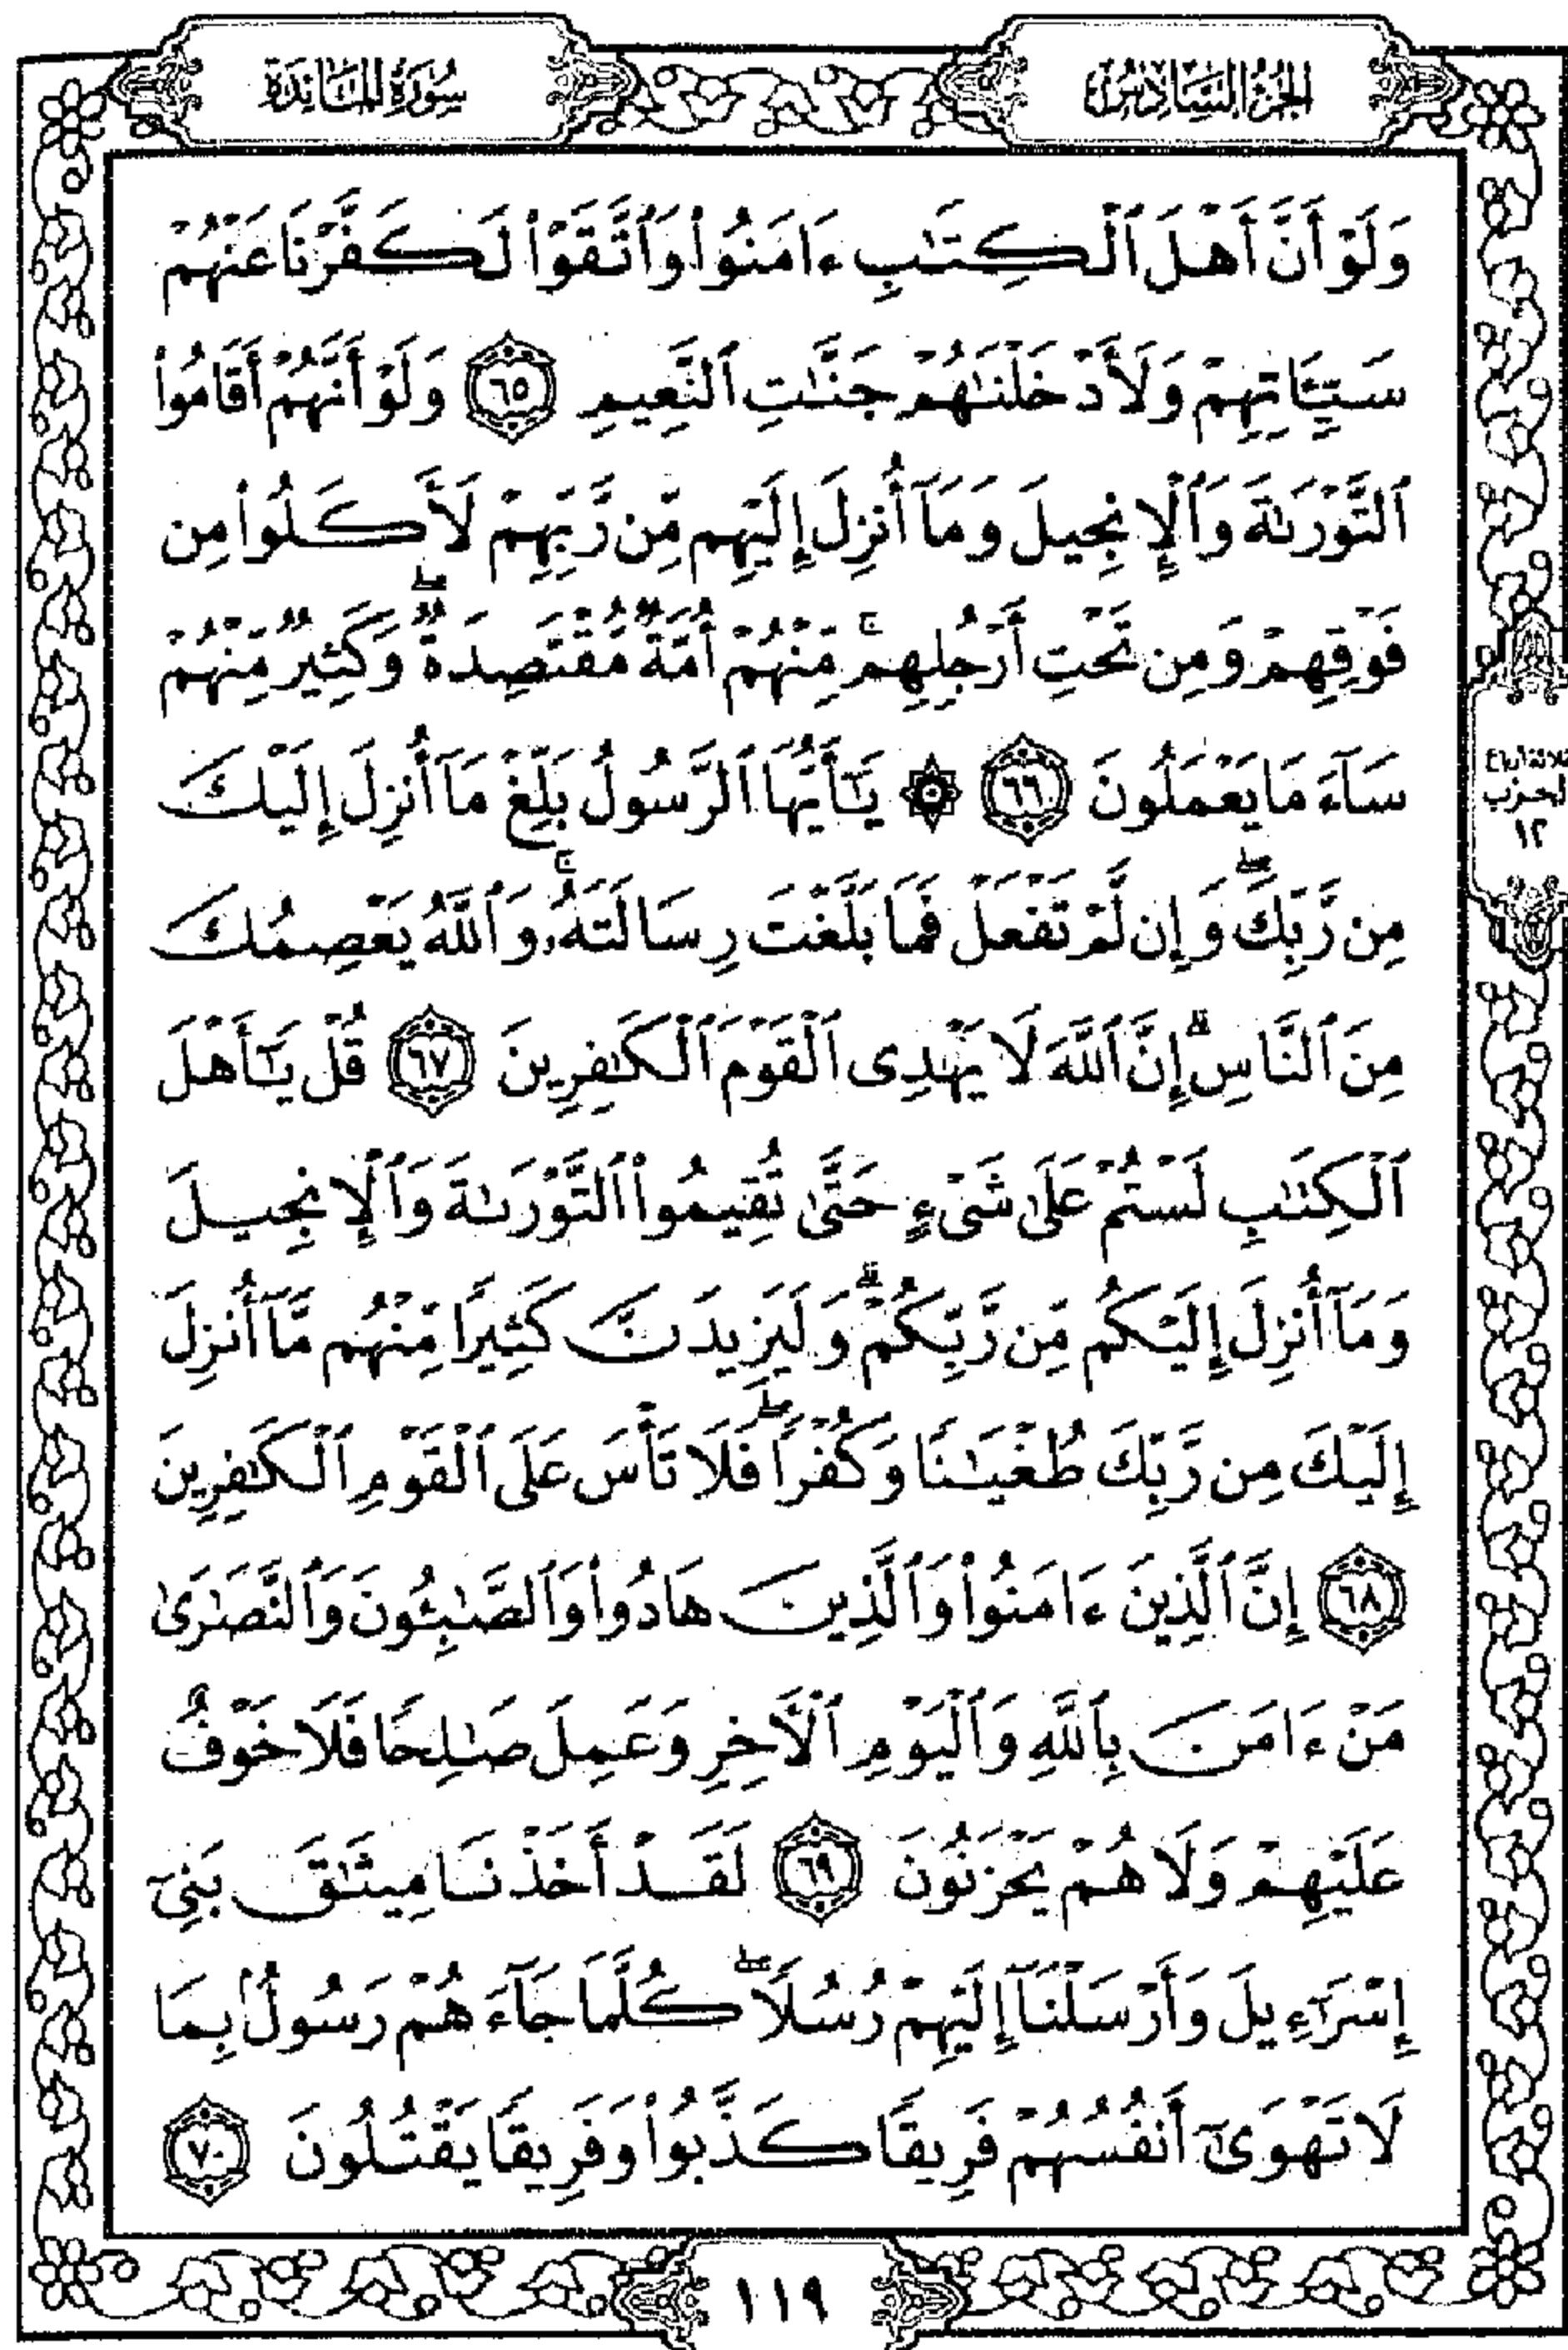 الجزء السادس
سورة المائدة
وَلَوْ أَنَّ أَهْلَ ٱلْكِتَٰبِ ءَامَنُوا۟ وَٱتَّقَوْا۟ لَكَفَّرْنَا عَنْهُمْ
سَيِّـَٔاتِهِمْ وَلَأَدْخَلْنَٰهُمْ جَنَّٰتِ ٱلنَّعِيمِ ٦٥ وَلَوْ أَنَّهُمْ أَقَامُوا۟
ٱلتَّوْرَىٰةَ وَٱلْإِنجِيلَ وَمَآ أُنزِلَ إِلَيْهِم مِّن رَّبِّهِمْ لَأَكَلُوا۟ مِن
فَوْقِهِمْ وَمِن تَحْتِ أَرْجُلِهِم ۚ مِّنْهُمْ أُمَّةٌ مُّقْتَصِدَةٌ ۖ وَكَثِيرٌ مِّنْهُمْ
سَآءَ مَا يَعْمَلُونَ ٦٦ ۞ يَٰٓأَيُّهَا ٱلرَّسُولُ بَلِّغْ مَآ أُنزِلَ إِلَيْكَ
مِن رَّبِّكَ ۖ وَإِن لَّمْ تَفْعَلْ فَمَا بَلَّغْتَ رِسَالَتَهُۥ ۚ وَٱللَّهُ يَعْصِمُكَ
مِنَ ٱلنَّاسِ ۗ إِنَّ ٱللَّهَ لَا يَهْدِى ٱلْقَوْمَ ٱلْكَٰفِرِينَ ٦٧ قُلْ يَٰٓأَهْلَ
ٱلْكِتَٰبِ لَسْتُمْ عَلَىٰ شَىْءٍ حَتَّىٰ تُقِيمُوا۟ ٱلتَّوْرَىٰةَ وَٱلْإِنجِيلَ
وَمَآ أُنزِلَ إِلَيْكُم مِّن رَّبِّكُمْ ۗ وَلَيَزِيدَنَّ كَثِيرًا مِّنْهُم مَّآ أُنزِلَ
إِلَيْكَ مِن رَّبِّكَ طُغْيَٰنًا وَكُفْرًا ۖ فَلَا تَأْسَ عَلَى ٱلْقَوْمِ ٱلْكَٰفِرِينَ
٦٨ إِنَّ ٱلَّذِينَ ءَامَنُوا۟ وَٱلَّذِينَ هَادُوا۟ وَٱلصَّٰبِـُٔونَ وَٱلنَّصَٰرَىٰ
مَنْ ءَامَنَ بِٱللَّهِ وَٱلْيَوْمِ ٱلْءَاخِرِ وَعَمِلَ صَٰلِحًا فَلَا خَوْفٌ
عَلَيْهِمْ وَلَا هُمْ يَحْزَنُونَ ٦٩ لَقَدْ أَخَذْنَا مِيثَٰقَ بَنِىٓ
إِسْرَٰٓءِيلَ وَأَرْسَلْنَآ إِلَيْهِمْ رُسُلًا ۖ كُلَّمَا جَآءَهُمْ رَسُولٌۢ بِمَا
لَا تَهْوَىٰٓ أَنفُسُهُمْ فَرِيقًا كَذَّبُوا۟ وَفَرِيقًا يَقْتُلُونَ ٧٠
ثلاثة أرباع
الحزب
١٢
١١٩